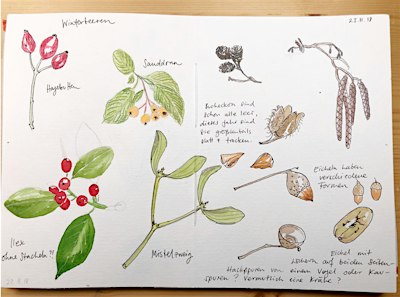 Winterbeeren
23.11.18
Hagebutten
Sanddorn
Bucheckern sind
schon alle leer,
dieses Jahr sind
sie größtenteils
platt + trocken.
Eicheln haben
verschiedene
Formen
Ilex
ohne Stacheln?!
Mistelzweig
Eichel mit
Löchern auf beiden Seiten-
Hackspuren von einem Vogel oder Kau-
spuren? Vermutlich eine Krähe?